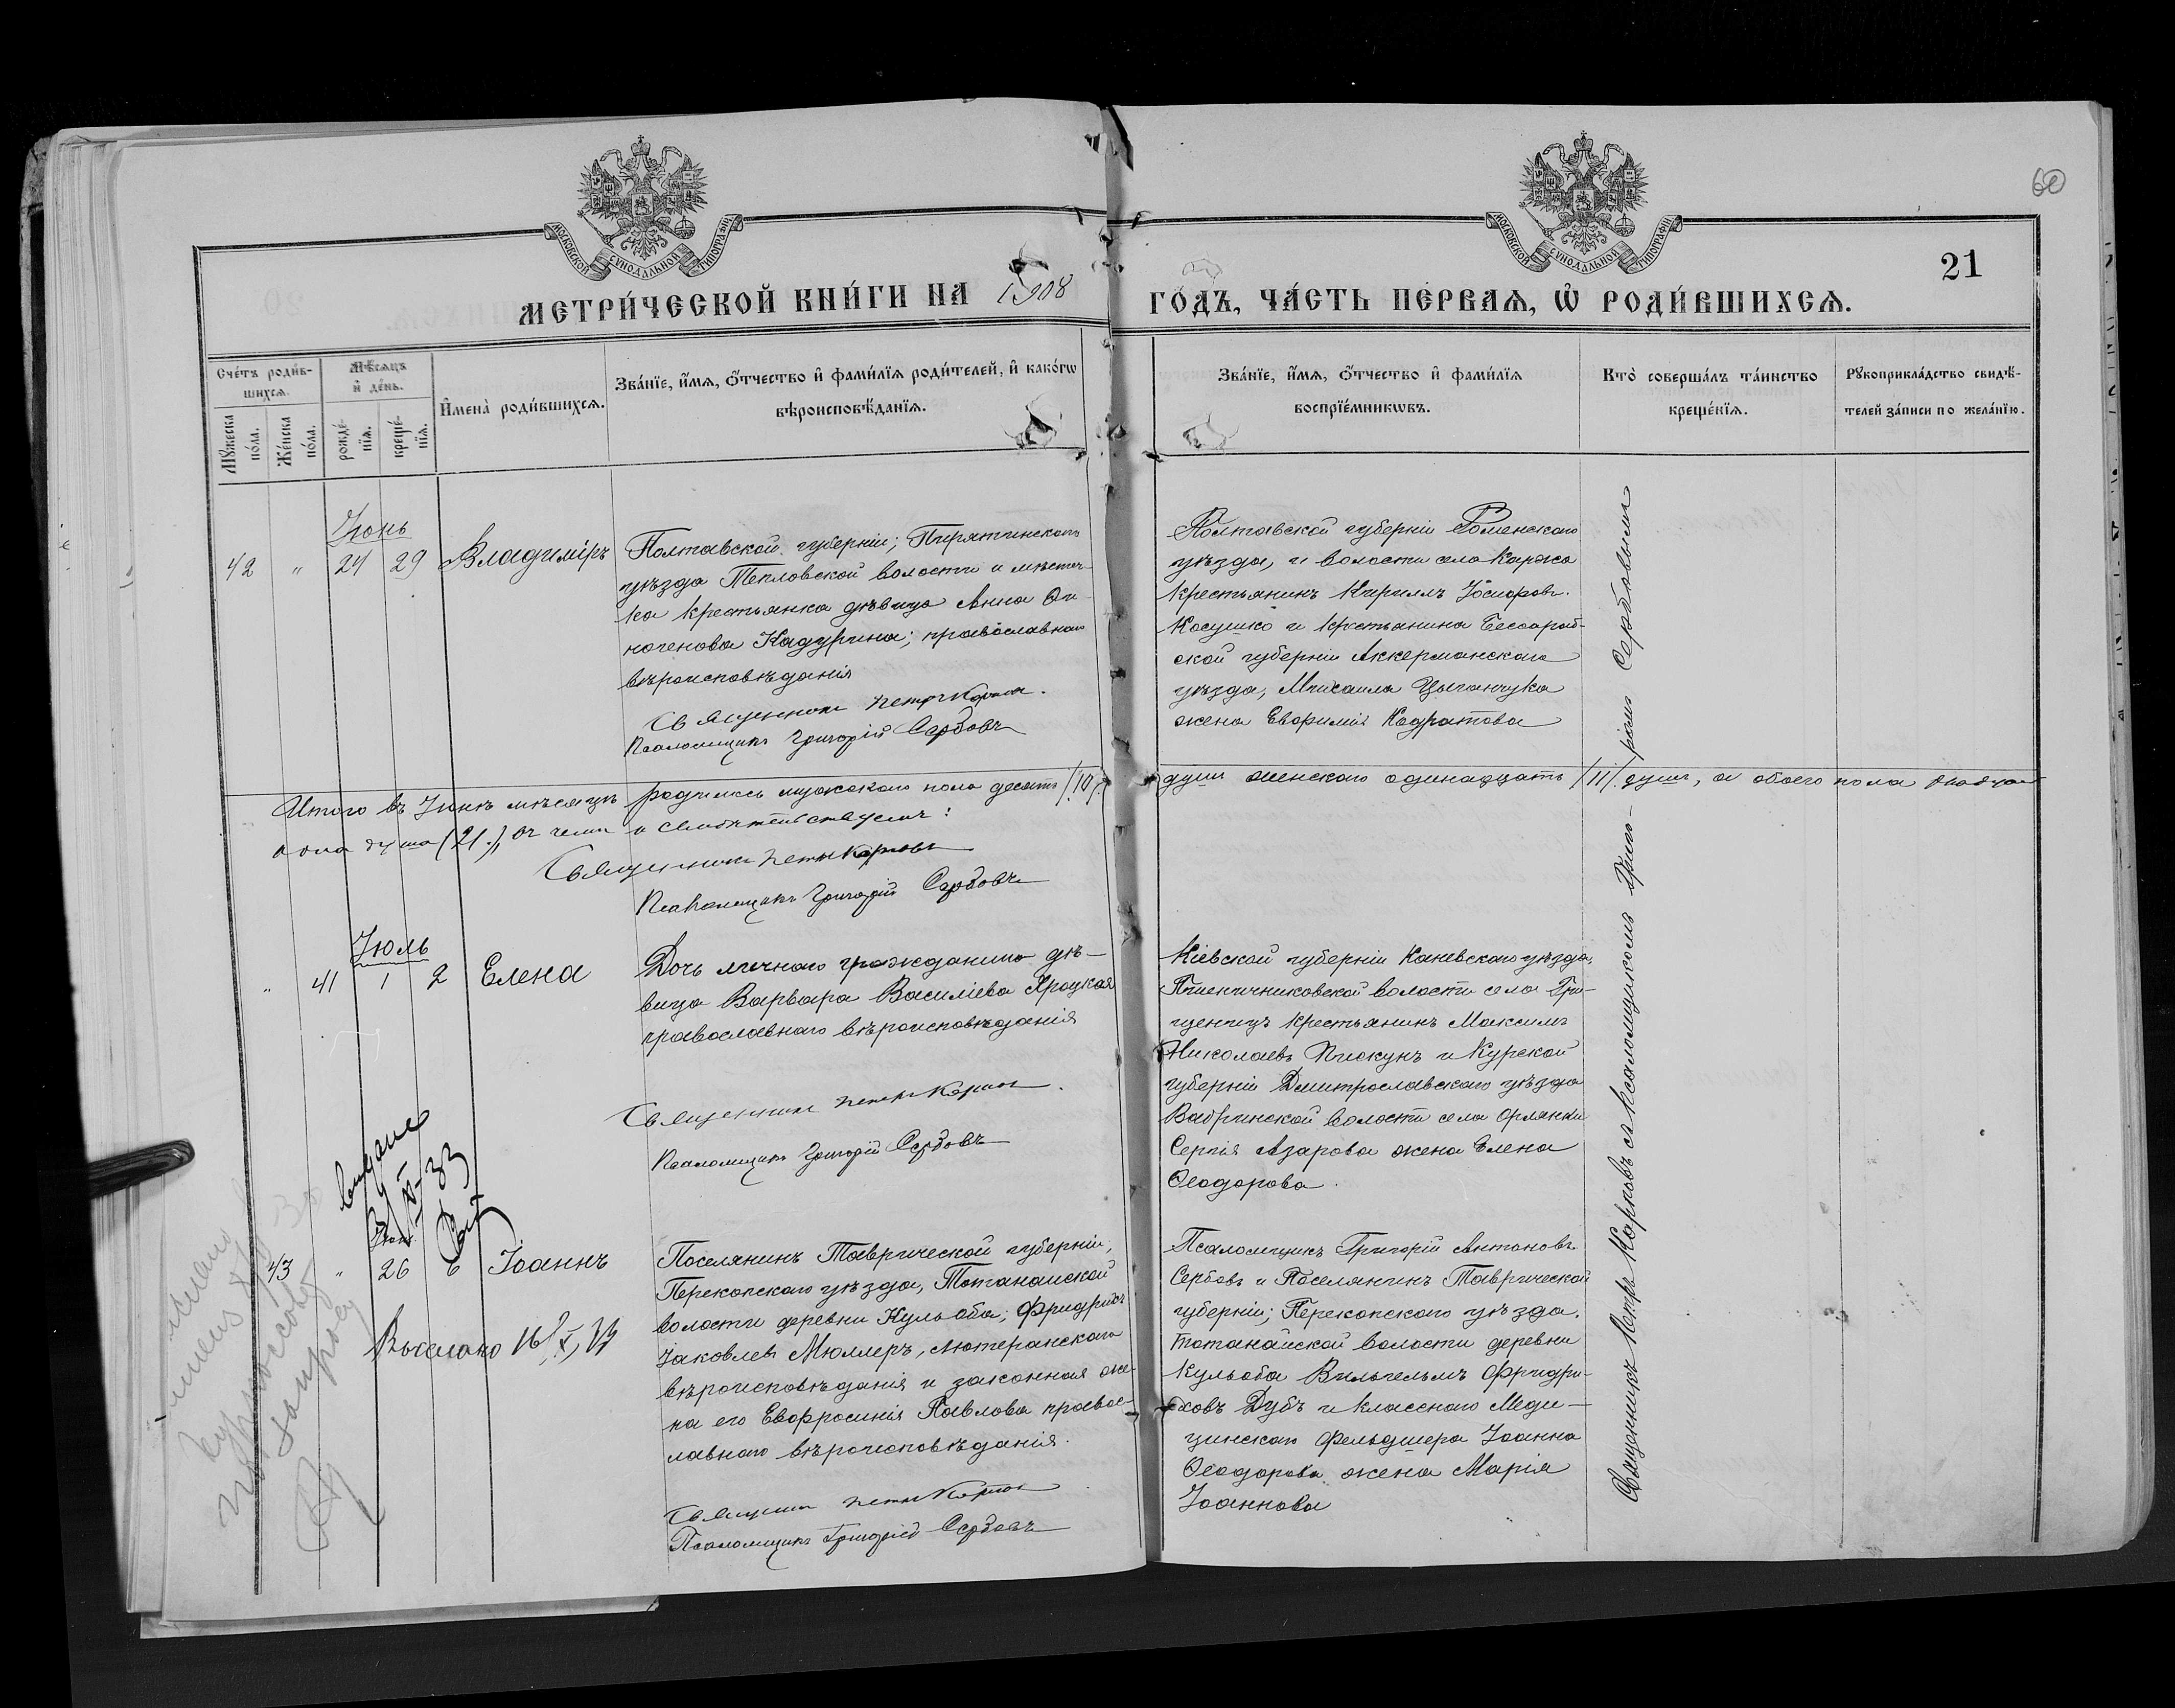 60
МОСКОВСКОЙ СѴНОДАЛЬНОЙ ТИПОГРАФІИ
МОСКОВСКОЙ СѴНОДАЛЬНОЙ ТИПОГРАФІИ
21
МЕТРИ́ЧЕСКОЙ КНИ́ГИ НА 1908 ГО́ДЪ, ЧА́СТЬ ПЕ́РВАѦ, Ѡ҆ РОДИ́ВШИХСѦ.
Сче́тъ роди́в-
шихсѧ.
Мꙋ́жеска по́ла.
Же́нска по́ла.
Мѣ́сѧцъ
и҆ де́нь.
рожде́-
нїѧ.
креще́-
нїѧ.
И҆мена̀ роди́вшихсѧ.
Зва́нїе, и҆́мѧ, ѻ҆́тчество и҆ фами́лїѧ роди́телей, и҆ како́гѡ
вѣроисповѣ́данїѧ.
Зва́нїе, и҆́мѧ, ѻ҆́тчество и҆ фами́лїѧ
воспрїе́мникѡвъ.
Кто̀ соверша́лъ та́инство
креще́нїѧ.
Рꙋкоприкла́дство свидѣ́-
телей за́писи по жела́нїю.
Іюнь
42 " 24 29 Владиміръ
Полтавской губерніи, Пирятинскаго
уѣзда Тепловской волости и мѣстеч-
ка крестьянка дѣвица Анна
Кадурина; православнаго
вѣроисповѣданія
Священникъ Петръ
Псаломщикъ Григорій Сербовъ
Полтавской губерніи Роменскаго
уѣзда, и волости села Каржа
крестьянинъ Кириллъ Іосифовъ
Косушко и крестьянина Бессараб-
ской губерніи Аккерманскаго
уѣзда, Михаила Цыганчука
жена Евфимія
Итого въ Іюнѣ мѣсяцѣ родилось мужского пола десять /10/ душъ женскаго одинадцать /11/ душъ, а обоего пола двадцать
одна душа (21), въ чемъ и свидѣтельствуемъ:
Священникъ Петръ
Псаломщикъ Григорій Сербовъ
Іюль
" 41 1 2 Елена
Дочь личнаго гражданина дѣ-
вица Варвара Василіева Яроцкая
православнаго вѣроисповѣданія
Священникъ Петръ
Псаломщикъ Григорій Сербовъ
Кіевской губерніи Каневскаго уѣзда,
Пшеничниковской волости села Гри-
щенецъ крестьянинъ Максимъ
Николаевъ Пискунъ и Курской
губерніи Дмитрославскаго уѣзда
волости села Орлянки
Сергія Азарова жена Елена
Ѳеодорова.
Іюнь
43 " 26 6 Іоаннъ
Выслано
Поселянинъ Таврической губерніи,
Перекопскаго уѣзда, Тотанайской
волости деревни Кульоба, Фридрихъ
Іаковлевъ Мюллеръ, лютеранскаго
вѣроисповѣданія и законная же-
на его Евфросинія Павлова правос-
лавнаго вѣроисповѣданія.
Священникъ Петръ
Псаломщикъ Григорій Сербовъ
Псаломщикъ Григорій Антоновъ
Сербовъ и Поселянинъ Таврической
губерніи, Перекопскаго уѣзда,
Тотанайской волости деревни
Кульоба Вильгельмъ Фридри-
ховъ Дубъ и класснаго Меди-
цинскаго Фельдшера Іоанна
Ѳеодорова жена Марія
Іоаннова
Священникъ Петръ Карповъ съ псаломщикомъ Григо-
ріемъ Сербовымъ